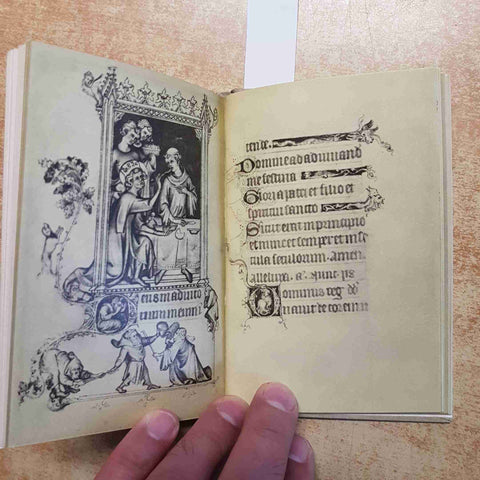 eus in adiuto
rium meum i
tende.
Domine ad adiuuand
me festina
Gloria patri et filio et
spiritui sancto
Sicut erat in principio
et nunc et semper et in se
cula seculorum. amen
alleluya.
Dominus reg